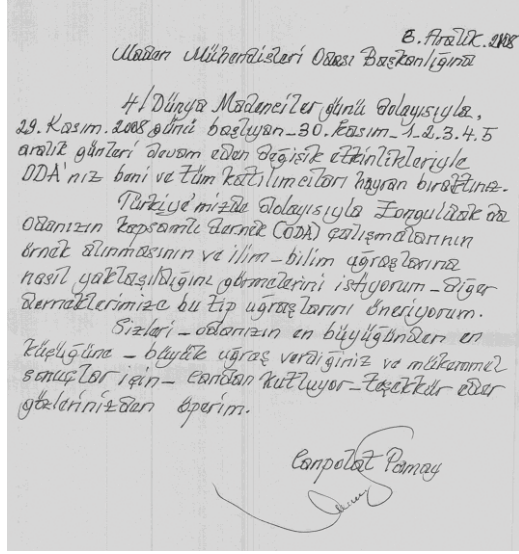 8. Aralık. 2008
Maden Mühendisleri Odası Başkanlığına
4/Dünya Madenciler günü dolayısıyla,
29. Kasım. 2008 günü başlıyan_30. Kasım_1_2.3.4.5
aralık günleri devam eden değişik etkinlikleriyle
ODA'nız beni ve tüm katılımcıları hayran bıraktınız.
Türkiye'mizde dolayısıyla Zonguldak da
Odanızın kapsamlı dernek (ODA) çalışmalarının
örnek alınmasının ve ilim_bilim uğraşlarına
nasıl yaklaşıldığını görmelerini istiyorum_diğer
derneklerimize bu tip uğraşlarını öneriyorum.
Sizleri_odanızın en büyüğünden en
küçüğüne_büyük uğraş verdiğiniz ve mükemmel
sonuçlar için_candan kutluyor_teşekkür eder
gözlerinizden öperim.
Canpolat Pamay